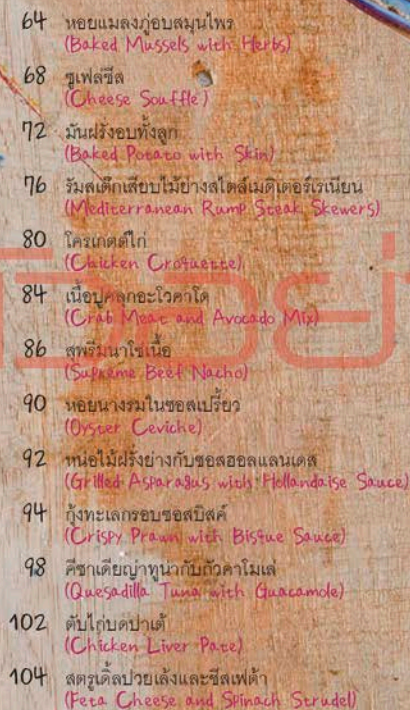 64 หอยแมลงภู่อบสมุนไพร
(Baked Mussels with Herbs)
68 ซูเฟล่ชีส
(Cheese Souffle)
72 มันฝรั่งอบทั้งลูก
(Baked Potato with Skin)
76 รัมสเต็กเสียบไม้ย่างสไตล์เมดิเตอร์เรเนียน
(Mediterranean Rump Steak Skewers)
80 โครเกตต์ไก่
(Chicken Croquette)
84 เนื้อปูคลุกอะโวคาโด
(Crab Meat and Avocado Mix)
86 สุพรีมนาโช่เนื้อ
(Supreme Beef Nacho)
90 หอยนางรมในซอสเปรี้ยว
(Oyster Ceviche)
92 หน่อไม้ฝรั่งย่างกับซอสฮอลแลนเดส
(Grilled Asparagus with Hollandaise Sauce)
94 กุ้งทะเลกรอบซอสบิสค์
(Crispy Prawn with Bisque Sauce)
98 คีซาเดียญ่าทูน่ากับกัวคาโมเล่
(Quesadilla Tuna with Guacamole)
102 ตับไก่บดปาเต้
(Chicken Liver Pate)
104 สตรูเดิ้ลปวยเล้งและชีสเฟต้า
(Feta Cheese and Spinach Strudel)